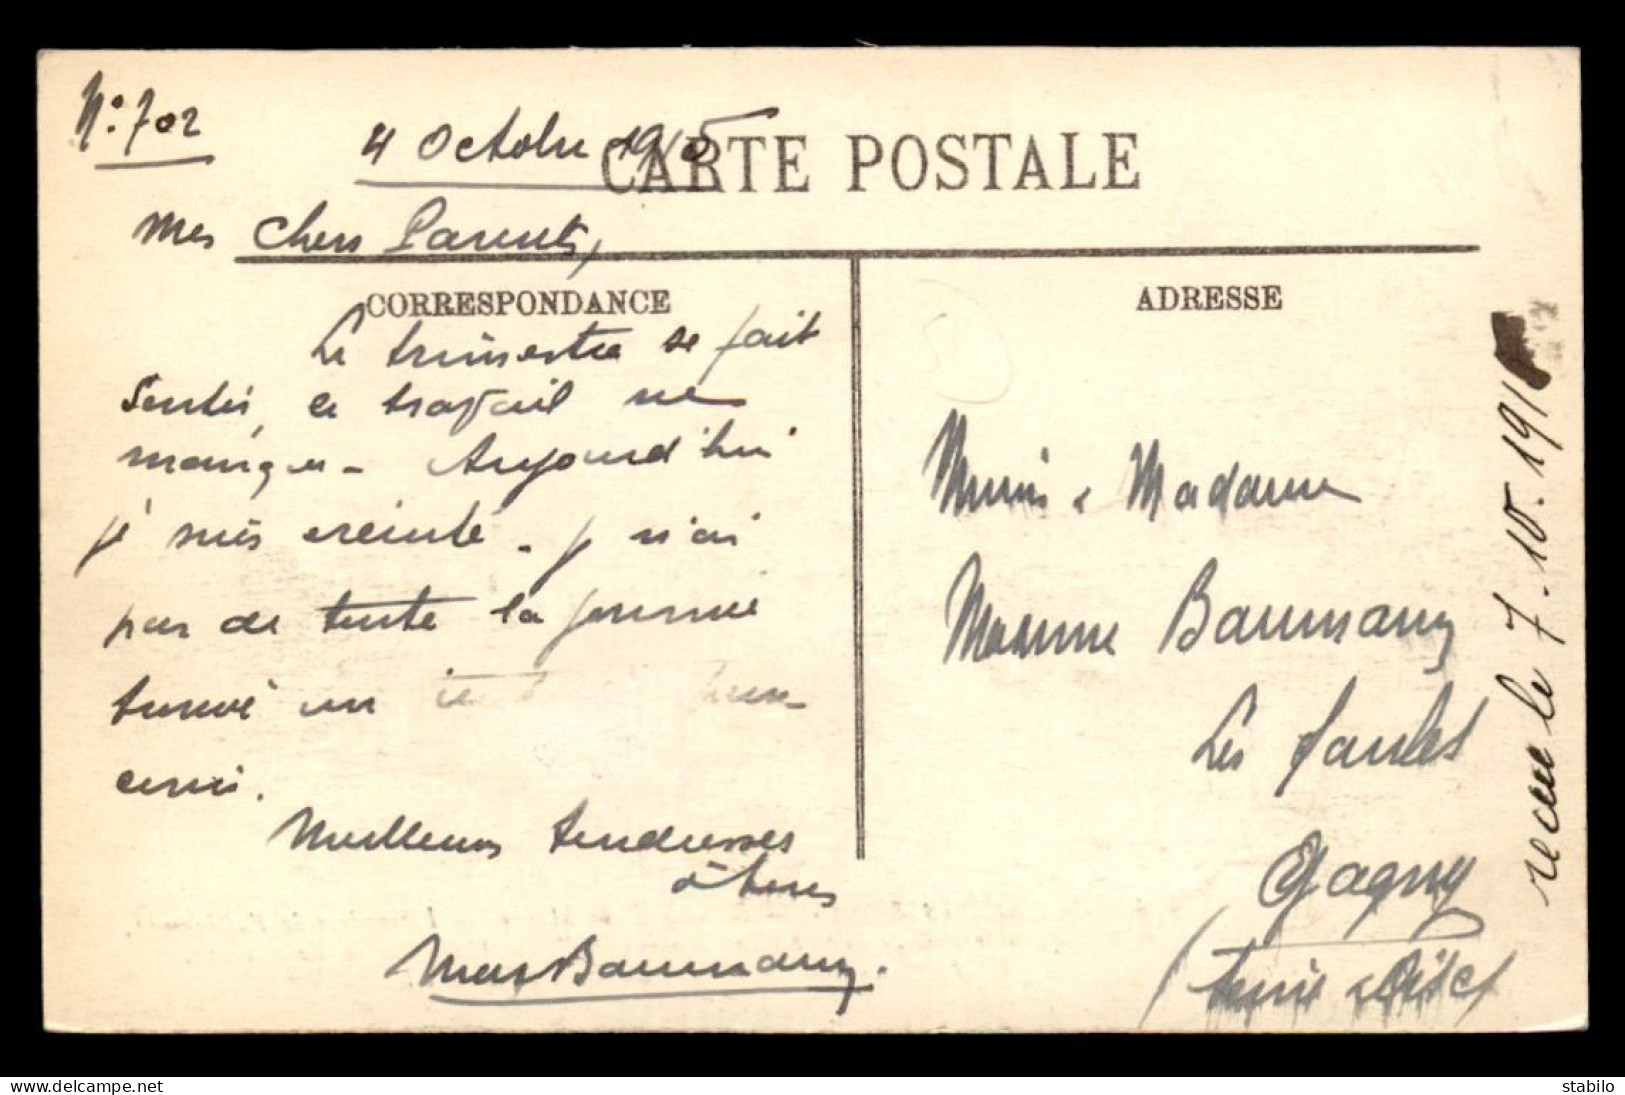 N° 702
4 Octobre 1915
CARTE POSTALE
Mes Chers Parents,
CORRESPONDANCE
Le trimestre se fait
sentir, le travail ne
manque - Aujourd'hui
je suis éreinté - je n'ai
pas de toute la journée
trouvé un
Meilleures tendresses
à tous
Max Baumann.
ADRESSE
& Madame
Maxime Baumann
Les
Gagny
(Seine & Oise)
recue le 7.10.191
www.delcampe.net
stabilo